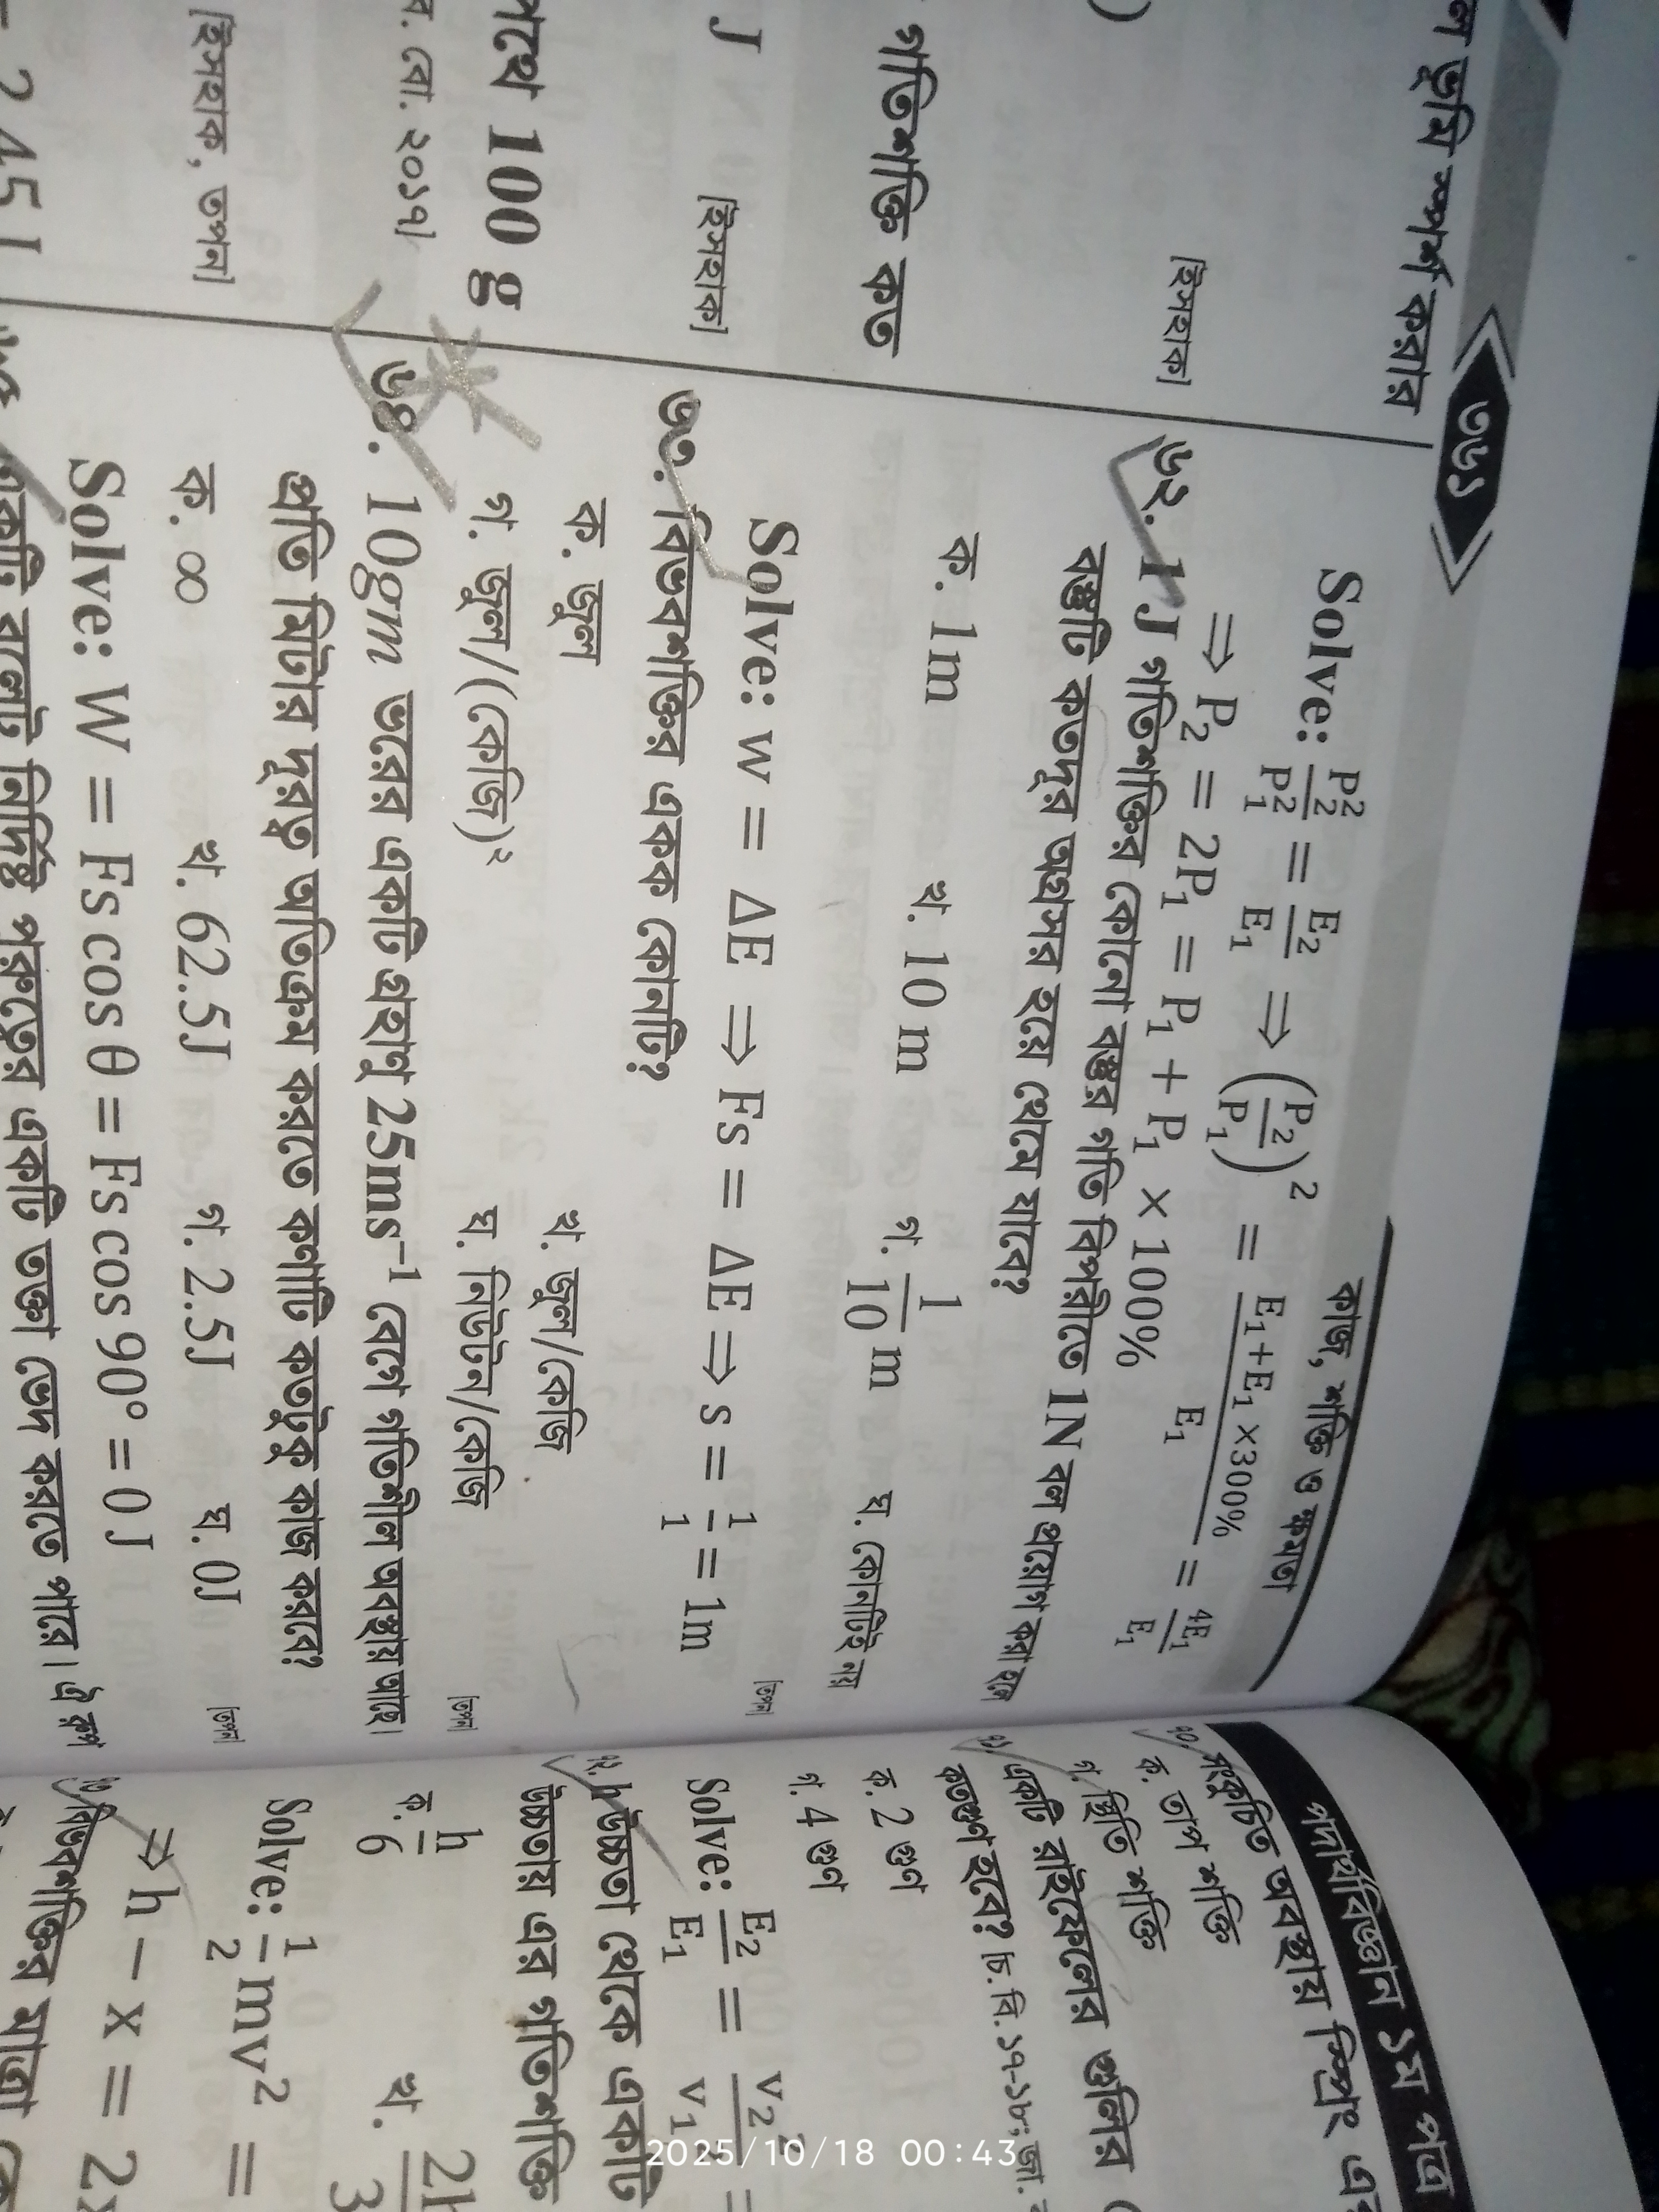 ল ভূমি স্পর্শ করার
[ইসহাক]
গতিশক্তি কত
J
[ইসহাক]
পথে 100 g
বো. ২০১৭]
[ইসহাক, তপন]
৩৬১
কাজ, শক্তি ও ক্ষমতা
Solve: P₂²/P₁² = E₂/E₁ ⇒ (P₂/P₁)² = (E₁+E₁×300%)/E₁ = 4E₁/E₁
⇒ P₂ = 2P₁ = P₁ + P₁ × 100%
৬২. 1J গতিশক্তির কোনো বস্তুর গতি বিপরীতে 1N বল প্রয়োগ করা হলে
বস্তুটি কতদূর অগ্রসর হয়ে থেমে যাবে?
[তপন]
ক. 1m খ. 10 m গ. 1/10 m ঘ. কোনটিই নয়
Solve: w = ΔE ⇒ Fs = ΔE ⇒ s = 1/1 = 1m
৬৩. বিভবশক্তির একক কোনটি?
[তপন]
ক. জুল খ. জুল/কেজি
গ. জুল/(কেজি)² ঘ. নিউটন/কেজি
৬৪. 10gm ভরের একটি গ্রহাণু 25ms⁻¹ বেগে গতিশীল অবস্থায় আছে।
প্রতি মিটার দূরত্ব অতিক্রম করতে কণাটি কতটুকু কাজ করবে?
[তপন]
ক. ∞ খ. 62.5J গ. 2.5J ঘ. 0J
Solve: W = Fs cos θ = Fs cos 90° = 0 J
একটি বুলেট নির্দিষ্ট পুরুত্বের একটি তক্তা ভেদ করতে পারে। ঐ রূপ
পদার্থবিজ্ঞান ১ম পত্র
৭০. সংকুচিত অবস্থায় স্প্রিং এর
ক. তাপ শক্তি
গ. স্থিতি শক্তি
৭১. একটি রাইফেলের গুলির
কতগুণ হবে? [চ. বি. ১৭-১৮; জা.
ক. 2 গুণ
গ. 4 গুণ
Solve: E₂/E₁ = v₂²/v₁² =
৭২. h উচ্চতা থেকে একটি
উচ্চতায় এর গতিশক্তি
ক. h/6 খ. 2h/3
Solve: 1/2 mv² =
⇒ h − x = 2x
৭৩. বিভবশক্তির মাত্রা
2025/10/18 00:43